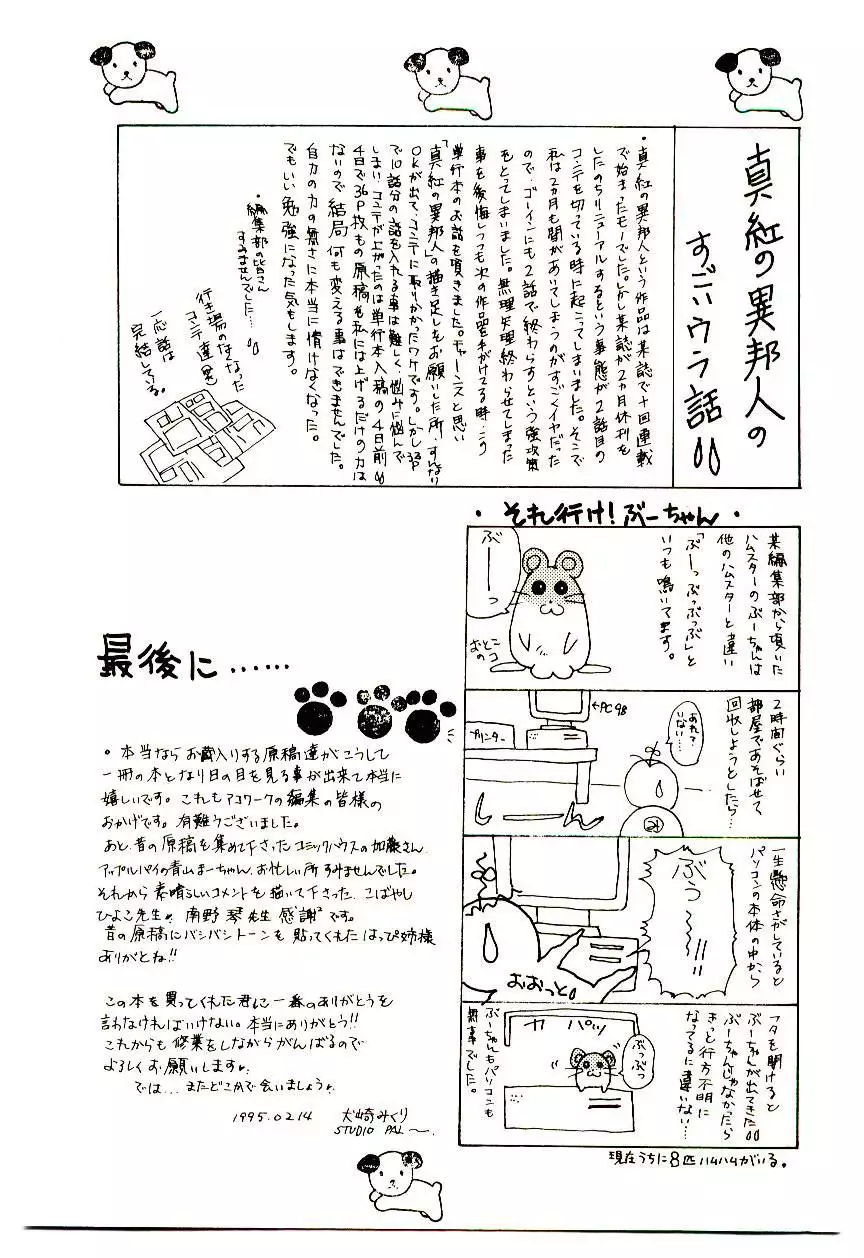 真紅の異邦人の
すごいウラ話
・真紅の異邦人という作品は某誌で十回連載
で始まったモノでした。しかし某誌が2ヵ月休刊を
したのちリニューアルするという事態が2話目の
コンテを切っている時に起こってしまいました。そこで
私は2ヵ月も間があいてしまうのがすごくイヤだった
ので、ゴーインにも2話で終わらすという強攻策
をとってしまいました。無理矢理終わらせてしまった
事を後悔しつつも次の作品を手がけてる時、この
単行本のお話を頂きました。チャーンスと思い
「真紅の異邦人」の描き足しをお願いした所、すんなり
OKが出て、コンテに取りかかったワケです。しかし33P
で10話分の話を入れる事は難しく、悩みに悩んで
しまい、コンテが上がったのは単行本入稿の4日前
4日で36P枚もの原稿を私には上げるだけの力は
ないので結局何も変える事はできませんでした。
自分の力の無さに本当に情けなくなった。
でもいい勉強になった気もします。
・編集部の皆さん
すみませんでした…
行き場のなくなった
コンテ達
一応話は
完結している。
・それ行け!ぶーちゃん・
某編集部から頂いた
ハムスターのぶーちゃんは
他のハムスターと違い
「ぶーっぶっぶっぶ」と
いつも鳴いてます。
ぶーっ
おとこ
のコ
2時間ぐらい
部屋であそばせて
回収しようとしたら…
←PC98
プリンター
あれ?
いない…
しーん
一生懸命さがしていると
パソコンの本体の中から
ぶぅ〜!!
おおっと
フタを開けると
ぶーちゃんが出てきた
ぶーちゃんじゃなかったら
きっと行方不明に
なってるに違いない…
カパッ
ぶっぶっ
ぶーちゃんもパソコンも
無事でした。
現在うちに8匹ハムハムがいる。
最後に……
・本当ならお蔵入りする原稿達がこうして
一冊の本となり日の目を見る事が出来て本当に
嬉しいです。これもアコワークの編集の皆様の
おかげです。有難うございました。
あと、昔の原稿を集めて下さったコミックハウスの加藤さん
アップルパイの青山まーちゃん、お忙しい所すみませんでした。
それから素晴らしいコメントを描いて下さった、こばやし
ひよこ先生、南野琴先生感謝²です。
昔の原稿にバシバシトーンを貼ってくれたはっぴ姉様
ありがとね!!
この本を買ってくれた君に一番のありがとうを
言わなければいけない。本当にありがとう!!
これからも修業をしながらがんばるので
よろしくお願いします。
では…またどこかで会いましょう。
1995.02.14 犬崎みくり
STUDIO PAL〜